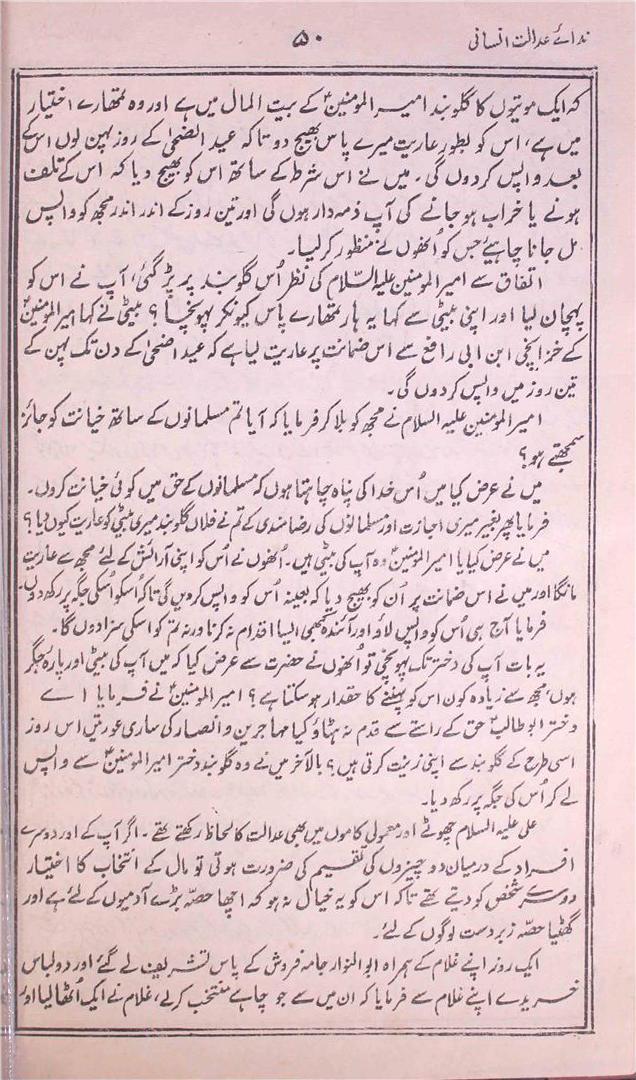 ندائے عدالت انسانی
۵۰
کہ ایک موتیوں کا گلوبند امیرالمومنینؑ کے بیت المال میں ہے اور وہ تمھارے اختیار
میں ہے، اس کو بطور عاریت میرے پاس بھیج دو تاکہ عید الضحیٰ کے روز پہن لوں اس کے
بعد واپس کردوں گی۔ میں نے اس شرط کے ساتھ اس کو بھیج دیا کہ اس کے تلف
ہونے یا خراب ہوجانے کی آپ ذمہ دار ہوں گی اور تین روز کے اندر اندر مجھ کو واپس
مل جانا چاہیئے جس کو اُنھوں نے منظور کرلیا۔
اتفاق سے امیرالمومنین علیہ السّلام کی نظر اُس گلوبند پر پڑ گئی، آپ نے اس کو
پہچان لیا اور اپنی بیٹی سے کہا یہ ہار تمھارے پاس کیونکر پہونچا؟ بیٹی نے کہا امیرالمومنینؑ
کے خزانچی ابن ابی رافع سے اس ضمانت پر عاریت لیا ہے کہ عید اضحیٰ کے دن تک پہن کے
تین روز میں واپس کردوں گی۔
امیرالمومنین علیہ السلام نے مجھ کو بلا کر فرمایا کہ آیا تم مسلمانوں کے ساتھ خیانت کو جائز
سمجھتے ہو؟
میں نے عرض کیا میں اُس خدا کی پناہ چاہتا ہوں کہ مسلمانوں کے حق میں کوئی خیانت کروں۔
فرمایا پھر بغیر میری اجازت اور مسلمانوں کی رضامندی کے تم نے فلاں گلوبند میری بیٹی کو عاریت کیوں دیا؟
میں نے عرض کیا یا امیرالمومنینؑ وہ آپ کی بیٹی ہیں۔ اُنھوں نے اُس کو اپنی آرائش کے لئے مجھ سے عاریت
مانگا اور میں نے اس ضمانت پر اُن کو بھیج دیا کہ بعینہ اُس کو واپس کردیں گی تاکہ اُسکو اُسکی جگہ پر رکھ دوں۔
فرمایا آج ہی اُس کو واپس لاؤ اور آئندہ کبھی ایسا اقدام نہ کرنا ورنہ تم کو اسکی سزا دوں گا۔
یہ بات آپ کی دختر تک پہونچی تو اُنھوں نے حضرت سے عرض کیا کہ میں آپ کی بیٹی اور پارۂ جگر
ہوں مجھ سے زیادہ کون اس کو پہننے کا حقدار ہوسکتا ہے؟ امیرالمومنینؑ نے فرمایا اے
دختر ابوطالبؑ حق کے راستے سے قدم نہ ہٹاؤ کیا مہاجرین و انصار کی ساری عورتیں اس روز
اسی طرح کے گلوبند سے اپنی زینت کرتی ہیں؟ بالآخر میں نے وہ گلوبند دختر امیرالمومنینؑ سے واپس
لے کر اس کی جگہ پر رکھ دیا۔
علی علیہ السلام چھوٹے اور معمولی کاموں میں بھی عدالت کا لحاظ رکھتے تھے۔ اگر آپ کے اور دوسرے
افراد کے درمیان دو چیزوں کی تقسیم کی ضرورت ہوتی تو مال کے انتخاب کا اختیار
دوسرے شخص کو دیتے تھے تاکہ اس کو یہ خیال نہ ہو کہ اچھا حصّہ بڑے آدمیوں کے لئے ہے اور
گھٹیا حصّہ زبردست لوگوں کے لئے۔
ایک روز اپنے غلام کے ہمراہ ابوالنوار جامہ فروش کے پاس تشریف لے گئے اور دو لباس
خریدے اپنے غلام سے فرمایا کہ ان میں سے جو چاہے منتخب کرلے، غلام نے ایک اُٹھا لیا اور